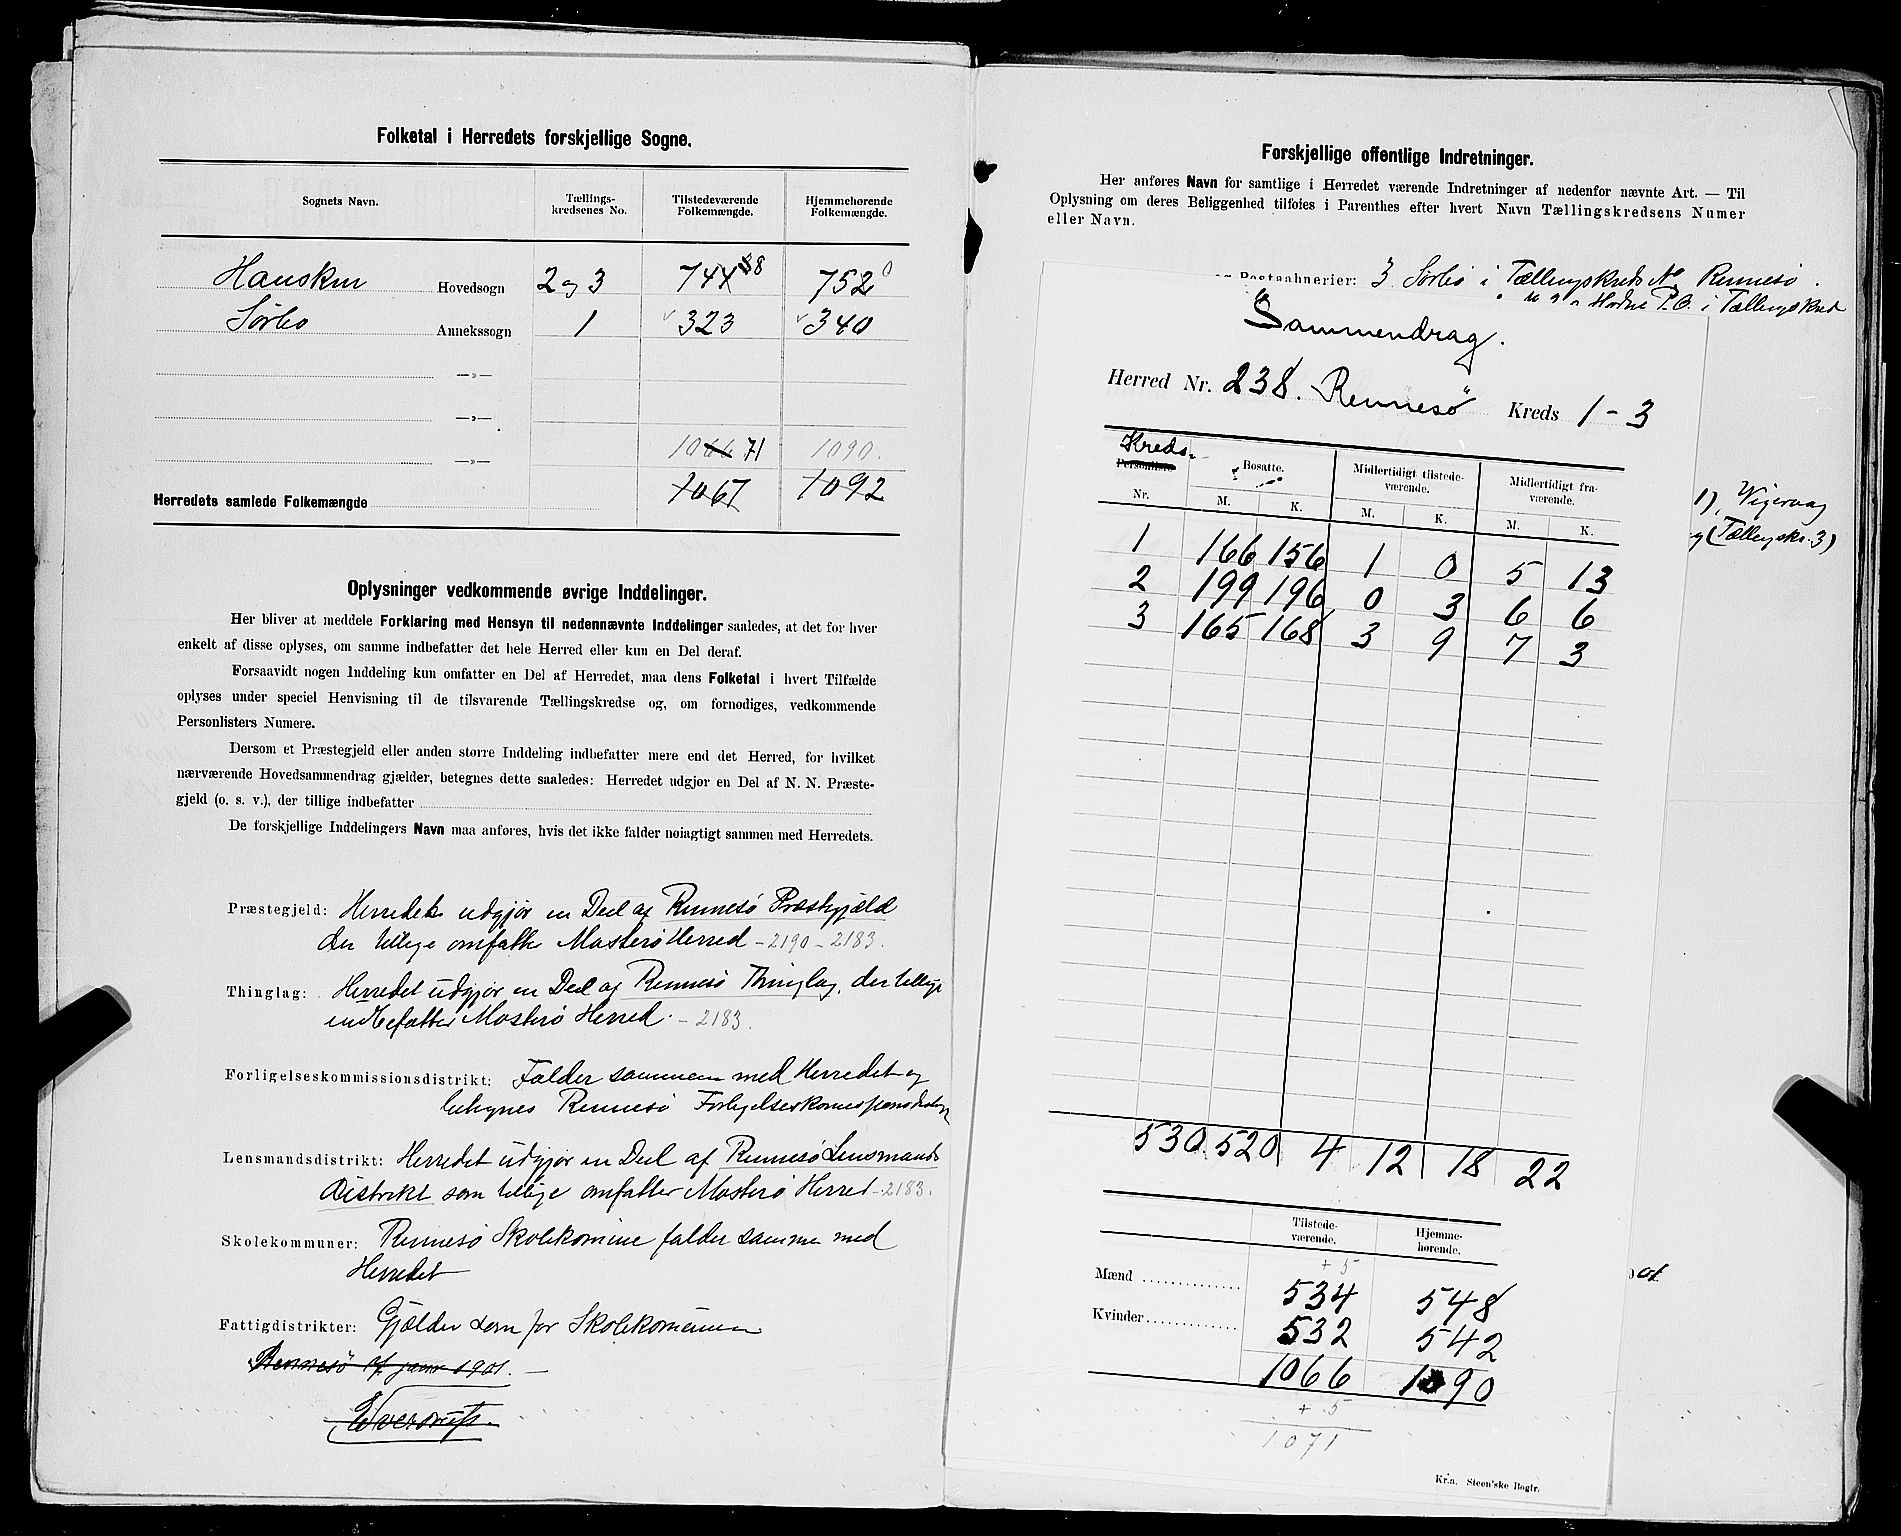 Folketal i Herredets forskjellige Sogne.
Sognets Navn. Tællings-kredsenes No. Tilstedeværende Folkemængde. Hjemmehørende Folkemængde.
Hausken Hovedsogn 2 og 3 744 88 752 0
Sørbo Annekssogn 1 323 340
—»—
—»—
1066 71 1090.
—»—
Herredets samlede Folkemængde 1067 1092
Oplysninger vedkommende øvrige Inddelinger.
Her bliver at meddele Forklaring med Hensyn til nedennævnte Inddelinger saaledes, at det for hver
enkelt af disse oplyses, om samme indbefatter det hele Herred eller kun en Del deraf.
Forsaavidt nogen Inddeling kun omfatter en Del af Herredet, maa dens Folketal i hvert Tilfælde
oplyses under speciel Henvisning til de tilsvarende Tællingskredse og, om fornødiges, vedkommende
Personlisters Numere.
Dersom et Præstegjeld eller anden større Inddeling indbefatter mere end det Herred, for hvilket
nærværende Hovedsammendrag gjælder, betegnes dette saaledes: Herredet udgjør en Del af N. N. Præste-
gjeld (o. s. v.), der tillige indbefatter
De forskjellige Inddelingers Navn maa anføres, hvis det ikke falder nøiagtigt sammen med Herredets.
Præstegjeld: Herredet udgjør en Deel af Rennesø Præstegjæld
der tillige omfatter Mosterø Herred - 2190 - 2183.
Thinglag: Herredet udgjør en Deel af Rennesø Thinglag, der tillige
indbefatter Mosterø Herred. - 2183.
Forligelseskommissionsdistrikt: Falder sammen med Herredet og
betegnes Rennesø
Lensmandsdistrikt: Herredet udgjør en Deel af Rennesø Lensmands
Distrikt som tillige omfatter Mosterø Herred - 2183.
Skolekommuner: Rennesø Skolekomune falder sammen med
Herredet
Fattigdistrikter: Gjælder som for Skolekomunen
Rennesø 17 janr 1901.
Forskjellige offentlige Indretninger.
Her anføres Navn for samtlige i Herredet værende Indretninger af nedenfor nævnte Art. — Til
Oplysning om deres Beliggenhed tilføies i Parenthes efter hvert Navn Tællingskredsens Numer
eller Navn.
Postaabnerier: 3 Sørbø i Tællingskreds No Rennesø.
P.O. i Tællingskred
Sammendrag.
Herred Nr. 238. Rennesö Kreds 1 - 3
Kreds.
Personliste Bosatte. Midlertidigt tilstede-værende. Midlertidigt fra-værende.
Nr. M. K. M. K. M. K.
1 166 156 1 0 5 13
2 199 196 0 3 6 6
3 165 168 3 9 7 3
530 520 4 12 18 22
Tilstede-værende. Hjemme-hørende.
+ 5
Mænd 534 548
Kvinder 532 542
1066 1090
+ 5
1071
Kr.a. Steen'ske Bogtr.
1), Vigevaag
og (Tællingskr. 3)